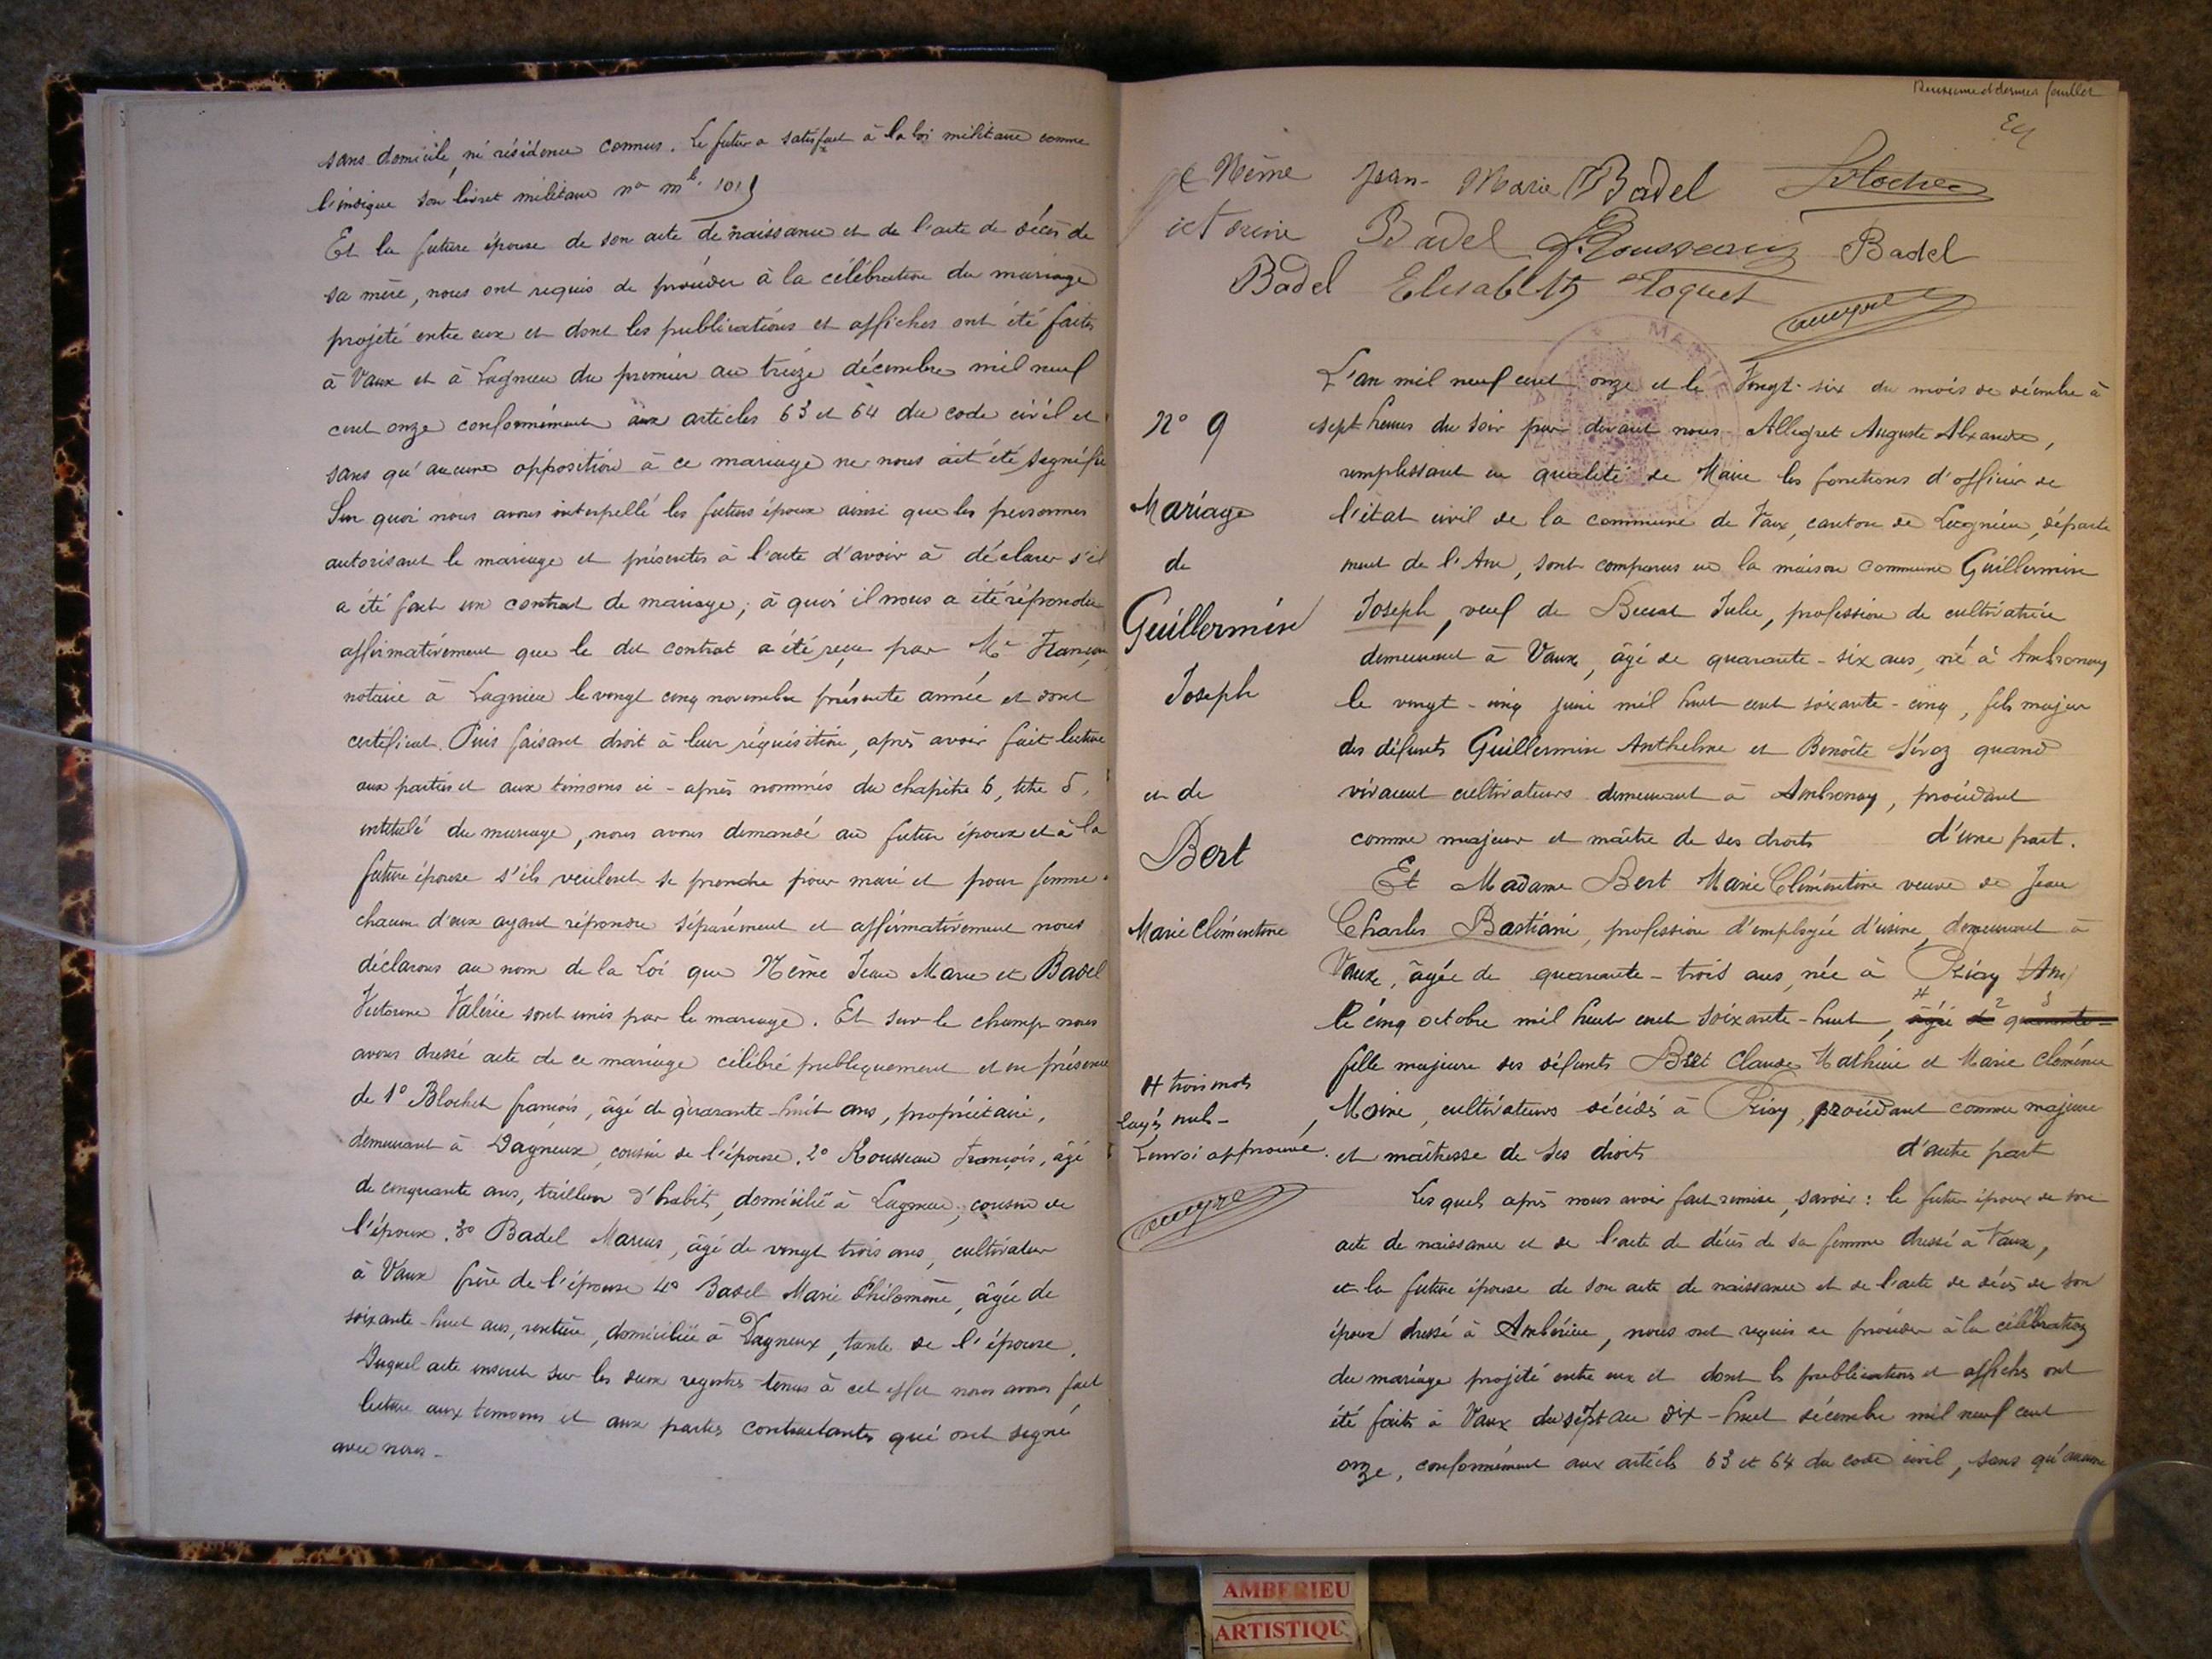 sans domicile, ni résidence connus. Le futur a satisfait à la loi militaire comme
l'indique son livret militaire no ml. 101
Et la future épouse de son acte de naissance et de l'acte de décès de
sa mère, nous ont requis de procéder à la célébration du mariage
projeté entre eux et dont les publications et affiches ont été faites
à Vaux et à Lagnieu du premier au treize décembre mil neuf
cent onze conformément aux articles 63 et 64 du code civil et
sans qu'aucune opposition à ce mariage ne nous ait été signifiée
Sur quoi nous avons interpellé les futurs époux ainsi que les personnes
autorisant le mariage et présentes à l'acte d'avoir à déclarer s'il
a été fait un contrat de mariage, à quoi il nous a été répondu
affirmativement que le dit contrat a été reçu par Me
notaire à Lagnieu le vingt cinq novembre présente année et dont
certificat. Puis faisant droit à leur réquisition, après avoir fait lecture
aux parties et aux témoins ci-après nommés du chapitre 6, titre 5,
intitulé du mariage, nous avons demandé au futur époux et à la
future épouse s'ils veulent se prendre pour mari et pour femme
chacun d'eux ayant répondu séparément et affirmativement nous
déclarons au nom de la Loi que Nême Jean Marie et Badel
Victorine Valérie sont unis par le mariage. Et sur le champ nous
avons dressé acte de ce mariage célébré publiquement et en présence
de 1° Blochet françois, âgé de quarante-huit ans, propriétaire,
demeurant à Dagneux, cousin de l'épouse. 2° Rousseau François, âgé
de cinquante ans, tailleur d'habit, domicilié à Lagnieu, cousin de
l'époux. 3° Badel Marius, âgé de vingt trois ans, cultivateur
à Vaux frère de l'épouse 4° Badel Marie Philomène, âgée de
soixante-huit ans, rentière, domiciliée à Dagneux, tante de l'épouse.
Duquel acte inscrit sur les deux registres tenus à cet effet nous avons fait
lecture aux témoins et aux parties contractantes qui ont signé
avec nous-
Deuxième et dernier feuillet
Nême Jean-Marie Badel Blochet
Badel F. Rousseau Badel
Badel Elisabeth
MAIRIE
N° 9
Mariage
de
Guillermin
Joseph
et de
Bert
Marie Clémentine
# trois mots
rayés nuls-
Renvoi approuvé.
L'an mil neuf cent onze et le Vingt-six du mois de décembre à
sept heures du soir par devant nous Allegret Auguste Alxandre,
remplissant en qualité de Maire les fonctions d'officier de
l'état civil de la commune de Vaux, canton de Lagnieu, départe
ment de l'Ain, sont comparus en la maison commune Guillermin
Joseph, veuf de Julie, profession de cultivatrice
demeurant à Vaux, âgé de quarante-six ans, né à Ambronay
le vingt-cinq juin mil huit cent soixante-cinq, fils majeur
des défunts Guillermin Anthelme et Benoîte quand
vivaient cultivateurs demeurant à Ambronay, procédant
comme majeur et maître de ses droits d'une part.
Et Madame Bert Marie Clémentine veuve de Jean
Charles Bastiani, profession d'employée d'usine, demeurant à
Vaux, âgée de quarante-trois ans, née à Priay (Ain)
le cinq octobre mil huit cent soixante-huit, # âgée de 2 quarante- 3
fille majeure des défunts Bert Claude Mathieu et Marie Clémence
Moine, cultivateurs décédés à Priay, procédant comme majeure
et maîtresse de ses droits d'autre part
Lesquels après nous avoir fait remise, savoir : le futur époux de son
acte de naissance et de l'acte de décès de sa femme dressé à Vaux,
et la future épouse de son acte de naissance et de l'acte de décès de son
époux dressé à Ambérieu, nous ont requis de procéder à la célébration
du mariage projeté entre eux et dont les publications et affiches ont
été faites à Vaux du sept au dix-huit décembre mil neuf cent
onze, conformément aux articles 63 et 64 du code civil, sans qu'aucune
AMBERIEU
ARTISTIQU